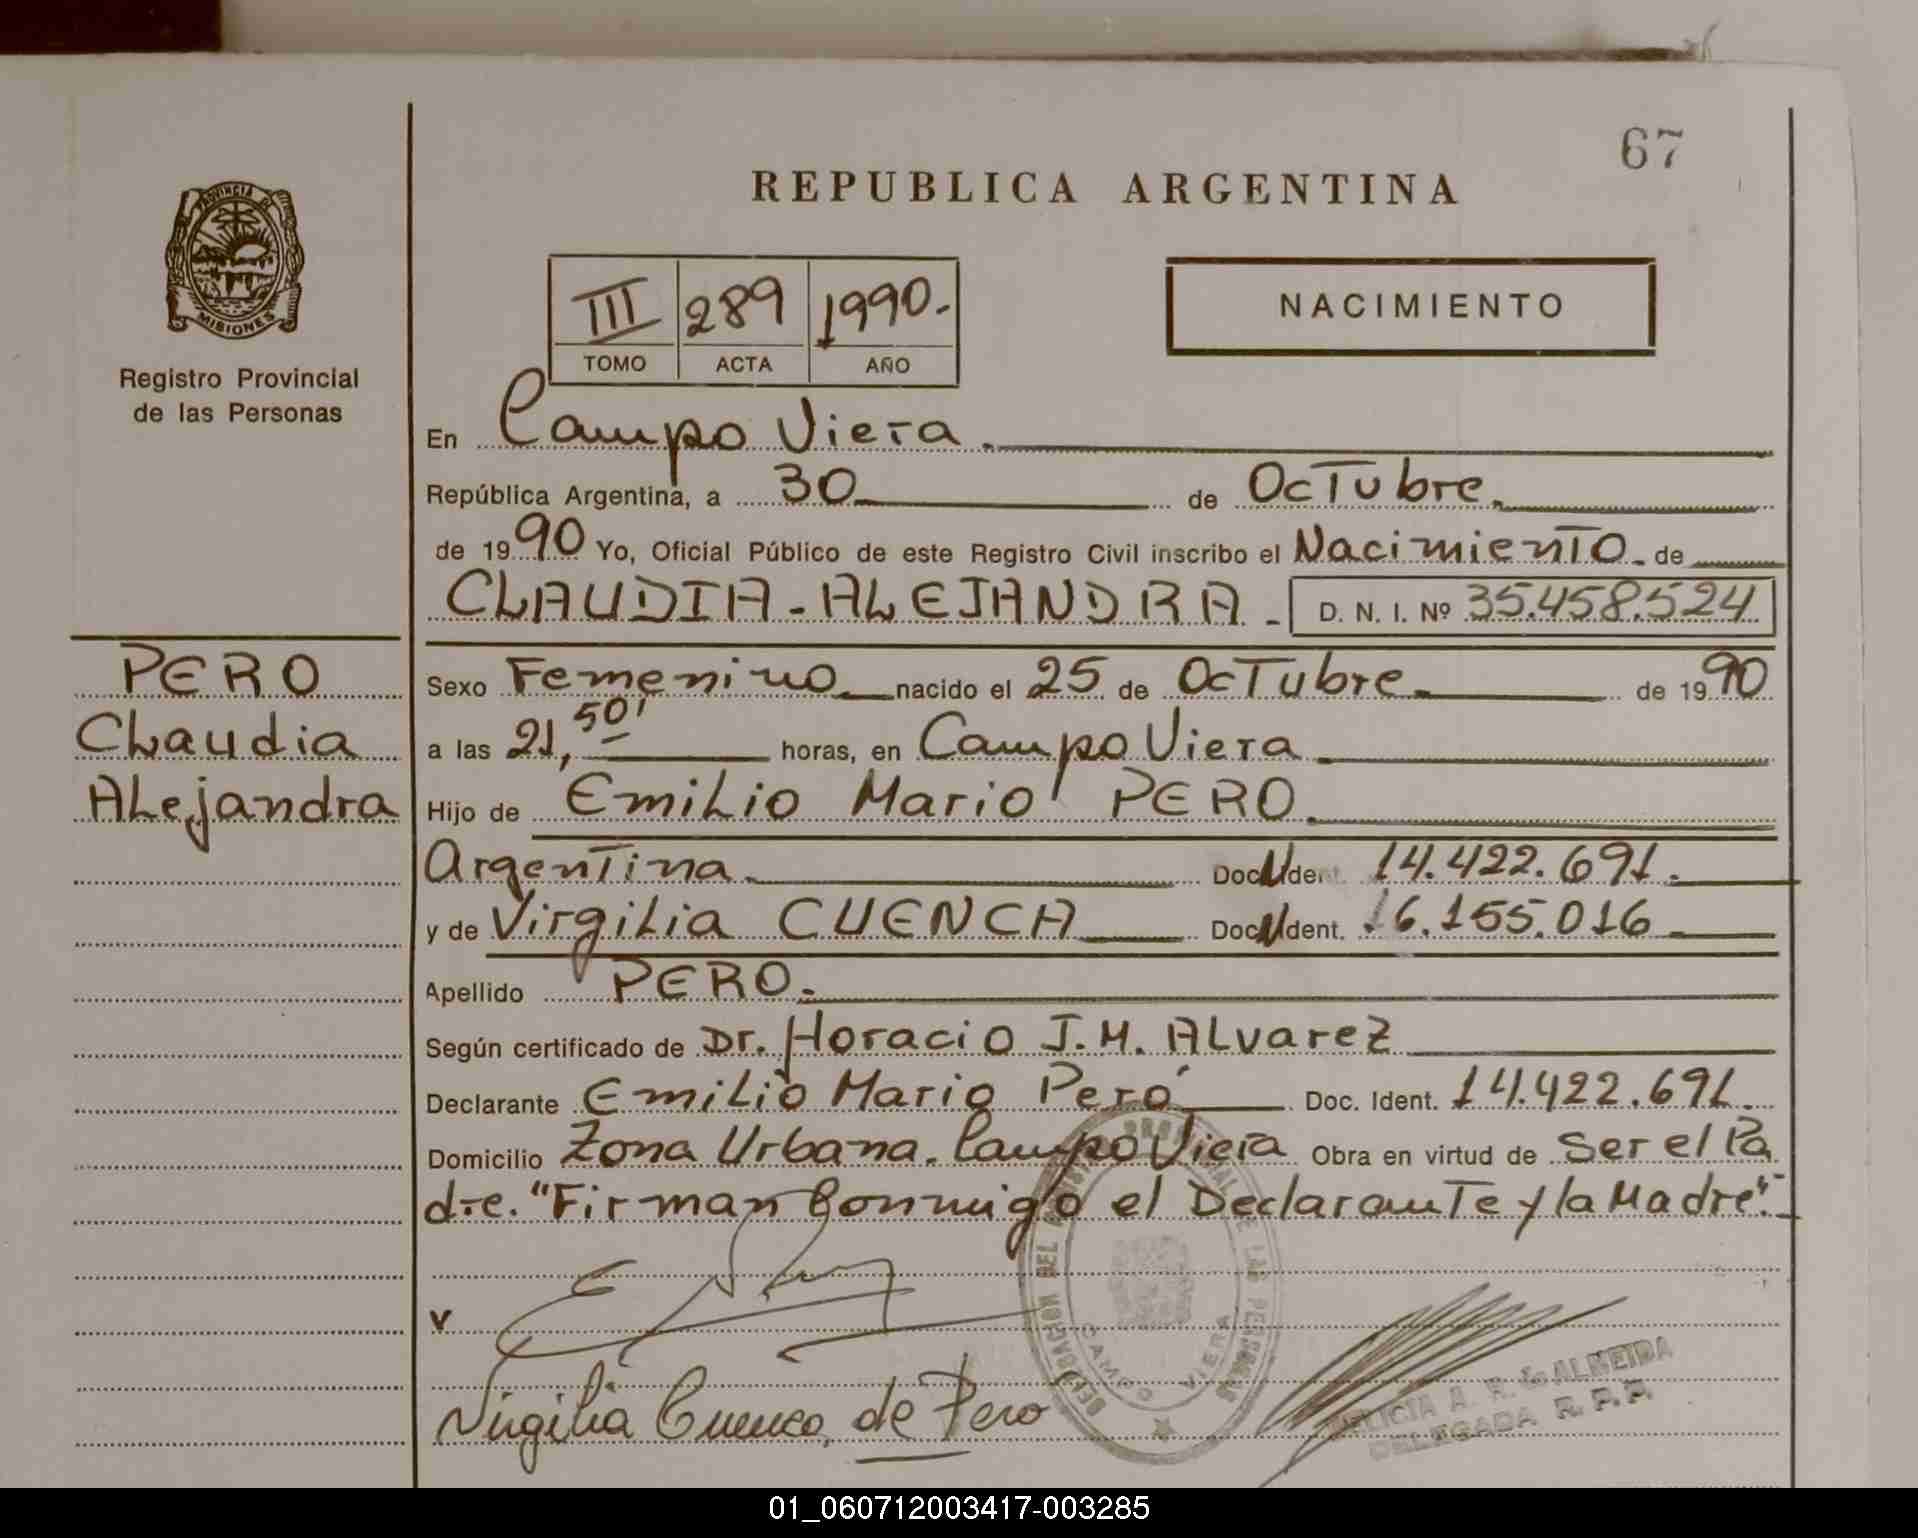 67
REPUBLICA ARGENTINA
PROVINCIA DE
MISIONES
Registro Provincial
de las Personas
III 289 1990.-
TOMO ACTA AÑO
NACIMIENTO
En Campo Viera.
República Argentina, a 30 de Octubre.
de 1990 Yo, Oficial Público de este Registro Civil inscribo el Nacimiento. de
CLAUDIA - ALEJANDRA - D. N. I. Nº 35.458.524
PERO
Claudia
Alejandra
Sexo Femenino nacido el 25 de Octubre. de 1990
a las 21,50' horas, en Campo Viera
Hijo de Emilio Mario PERO.
Argentina. Doc. Ident. 14.422.691.
y de Virgilia CUENCA Doc. Ident. 16.155.016
Apellido PERO.
Según certificado de Dr. Horacio J. M. Alvarez
Declarante Emilio Mario Peró Doc. Ident. 14.422.691.
Domicilio Zona Urbana. Campo Viera Obra en virtud de Ser el Pa
dre. "Firman Conmigo el Declarante y la Madre".-
v
Virgilia Cuenca de Pero
CAMPO VIERA
A. R. de ALMEIDA
DELEGADA R. P. P.
01_060712003417-003285